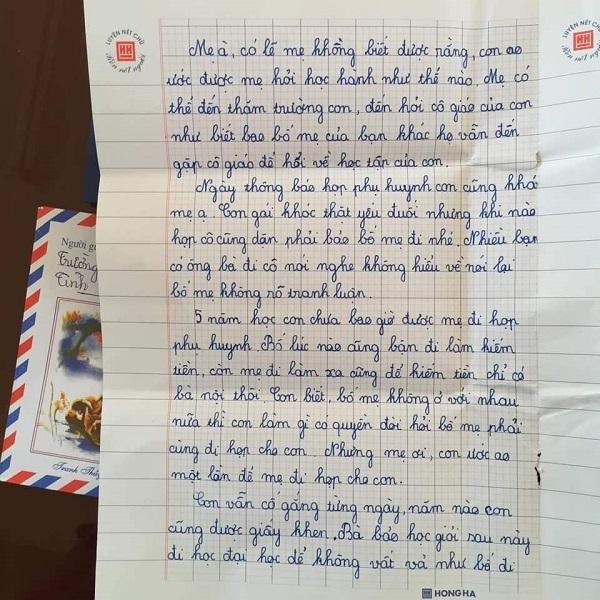 LUYỆN NÉT CHỮ
Mẹ à, có lẽ mẹ không biết được rằng, con ao
ước được mẹ hỏi học hành như thế nào. Mẹ có
thể đến thăm trường con, đến hỏi cô giáo của con
như biết bao bố mẹ của bạn khác họ vẫn đến
gặp cô giáo để hỏi về học tấn của con.
Ngày thông báo họp phụ huynh con cũng khó
mẹ ạ. Con gái khóc thật yếu đuối nhưng khi nào
họp cô cũng dặn phải bảo bố mẹ đi nhé. Nhiều bạn
có ông bà đi cô nói nghe không hiểu về nói lại
bố mẹ không rõ tranh luận.
5 năm học con chưa bao giờ được mẹ đi họp
phụ huynh. Bố lúc nào cũng bận đi làm kiếm
tiền, còn mẹ đi làm xa cũng để kiếm tiền chỉ có
bà nội thôi. Con biết, bố mẹ không ở với nhau
nữa thì con làm gì có quyền đòi hỏi bố mẹ phải
cùng đi họp cho con. Nhưng mẹ ơi, con ước ao
một lần để mẹ đi họp cho con.
Con vẫn cố gắng từng ngày, năm nào con
cũng được giấy khen. Bà bảo học giỏi sau này
đi học đại học để không vất vả như bố đi
HONG HA
Người gử
Trường
Tình
Tranh Thêu